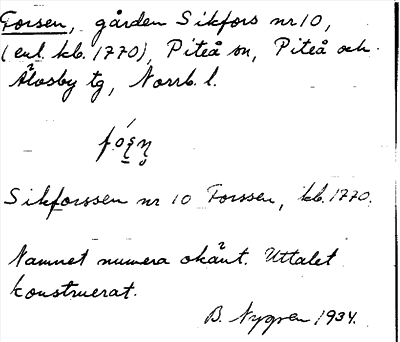 Forsen, gården Sikfors nr 10,
(enl. kb. 1770), Piteå sn, Piteå och
Älvsby tg, Norrb. l.
Sikforssen nr 10 Forssen, kb. 1770.
Namnet numera okänt. Uttalet
konstruerat.
B. Nygren 1934.